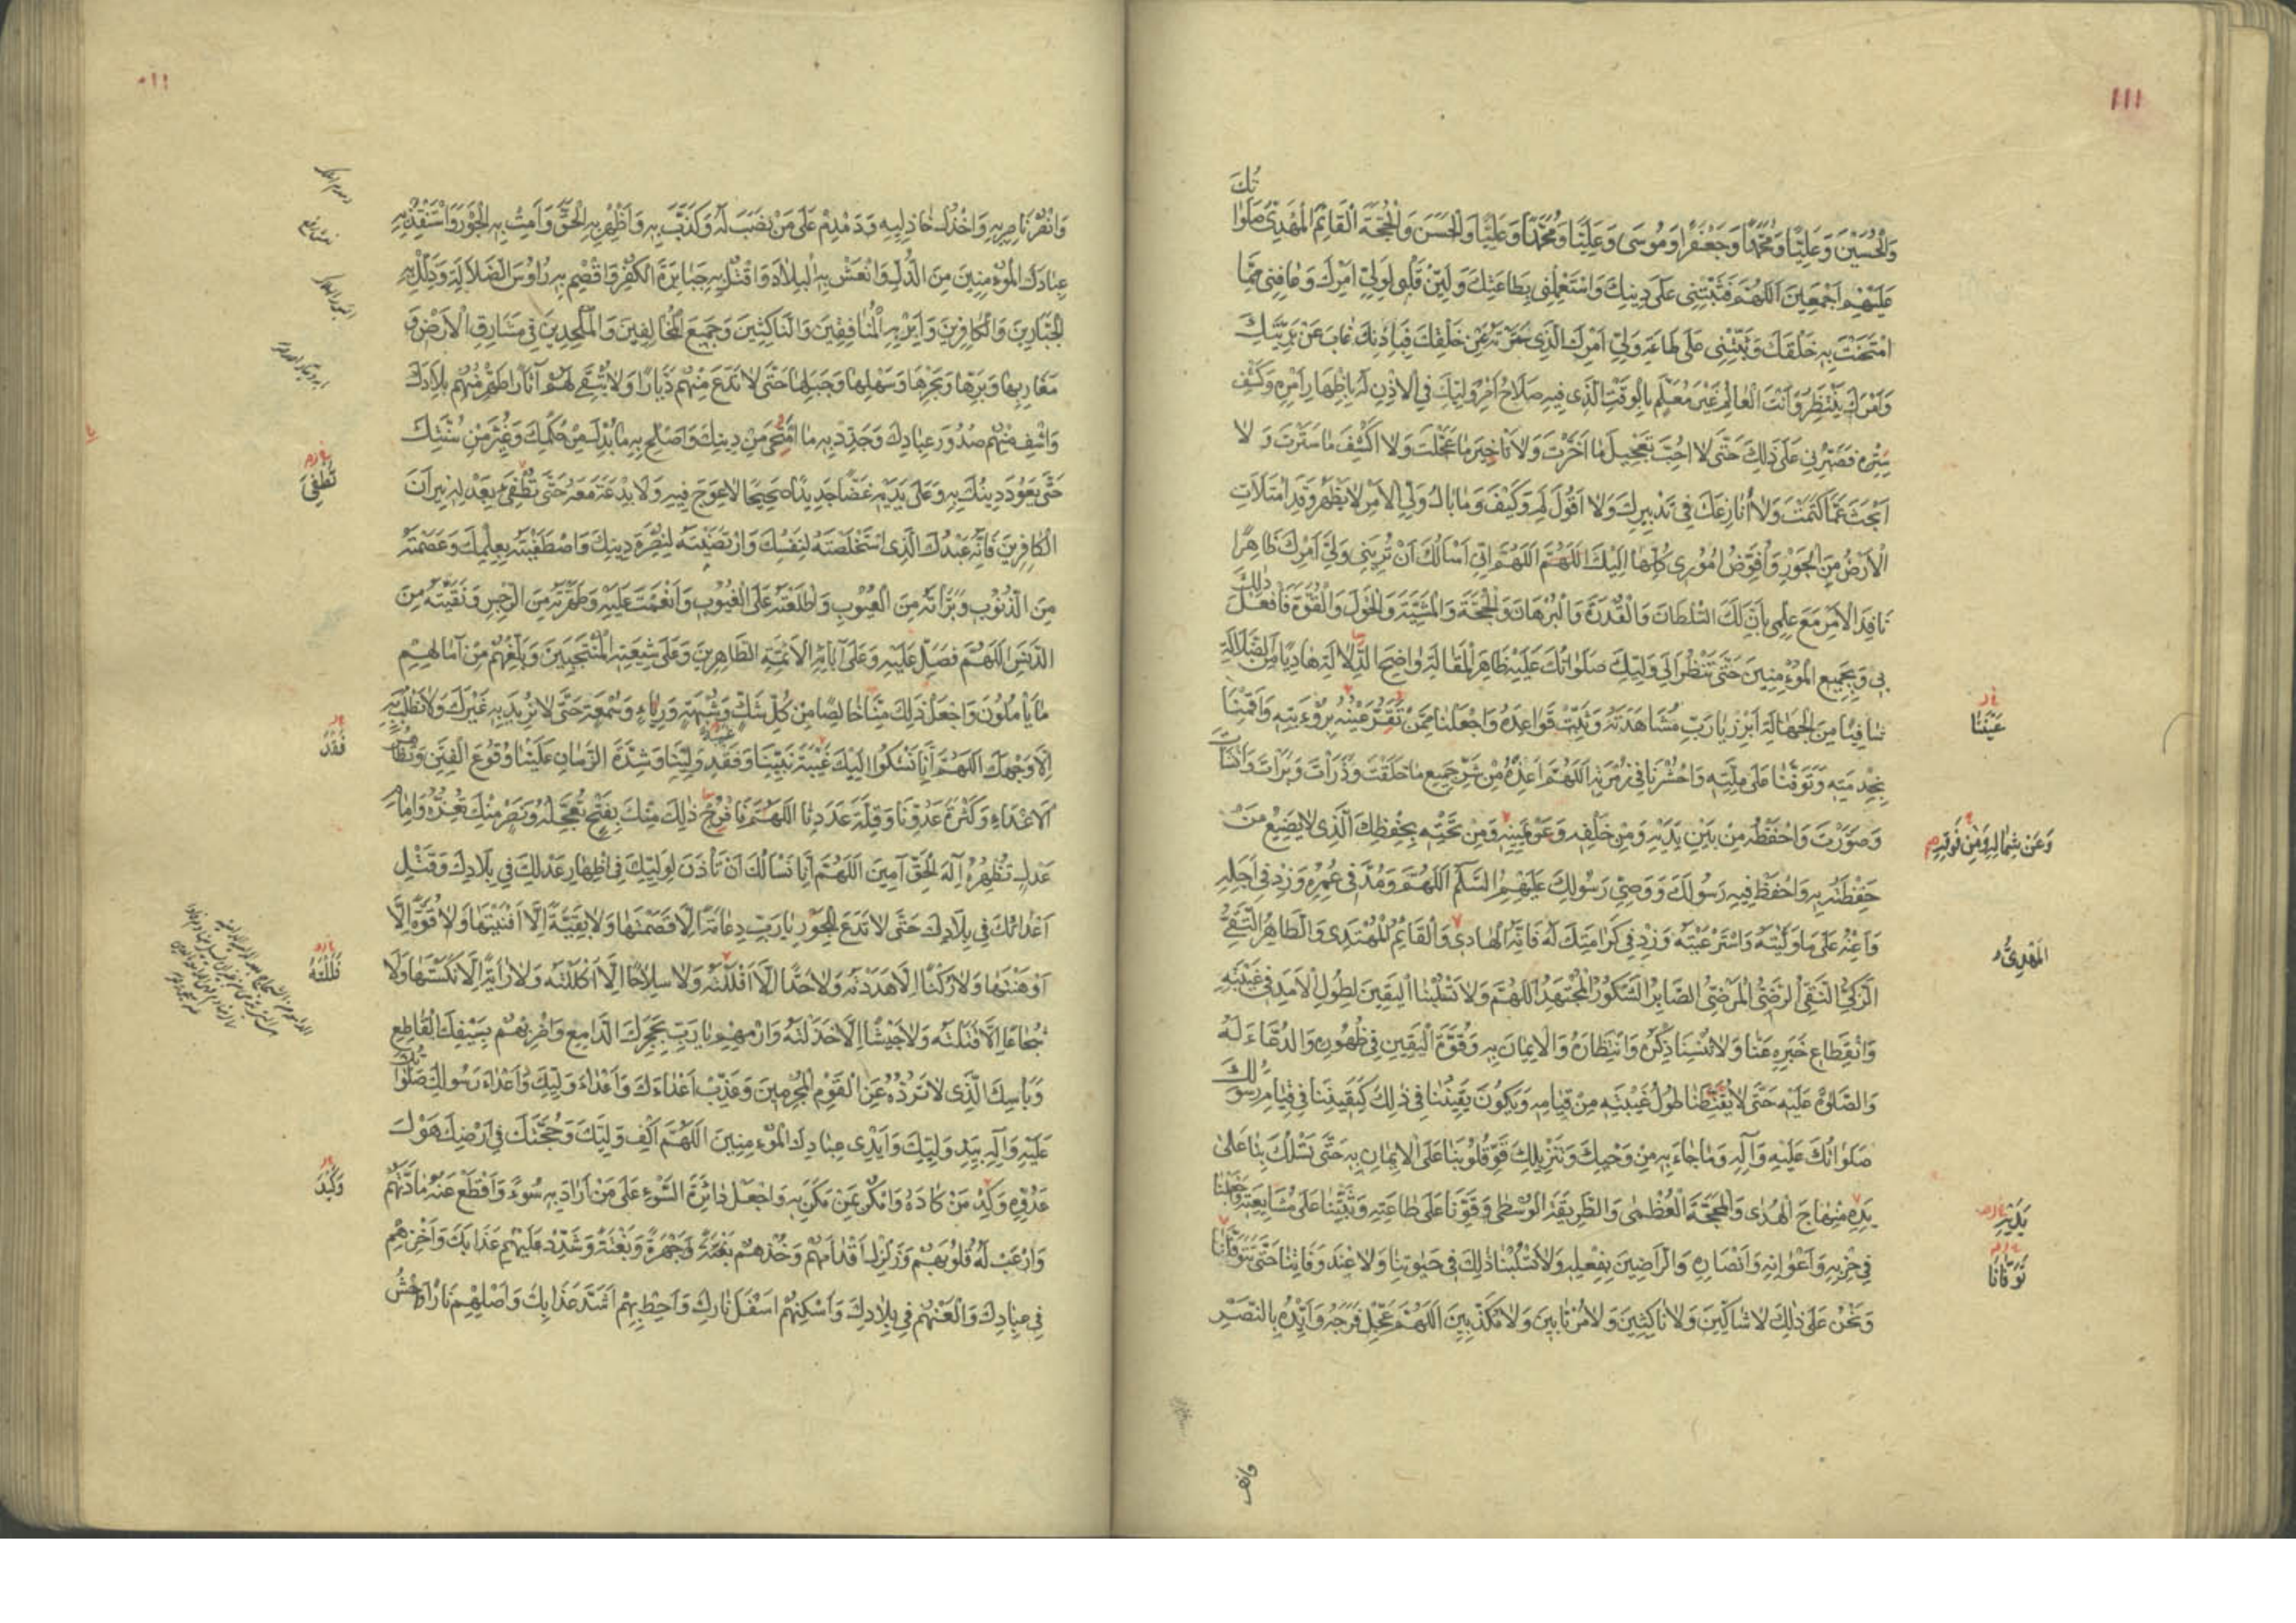 ١١١
تُكَ
وَالْحُسَيْنَ وَعَلِيًّا وَمُحَمَّدًا وَجَعْفَرًا وَمُوسَى وَعَلِيًّا وَمُحَمَّدًا وَعَلِيًّا وَالْحَسَنَ وَالْحُجَّةَ الْقَائِمَ الْمَهْدِيَّ صَلَوَا
عَلَيْهِمْ أَجْمَعِينَ اَللّٰهُمَّ فَثَبِّتْنِي عَلَى دِينِكَ وَاسْتَعْمِلْنِي بِطَاعَتِكَ وَلَيِّنْ قَلْبِي لِوَلِيِّ أَمْرِكَ وَعَافِنِي مِمَّا
امْتَحَنْتَ بِهِ خَلْقَكَ وَثَبِّتْنِي عَلَى طَاعَةِ وَلِيِّ أَمْرِكَ الَّذِي سَتَرْتَهُ عَنْ خَلْقِكَ فَبِإِذْنِكَ غَابَ عَنْ بَرِيَّتِكَ
وَأَمْرَكَ يَنْتَظِرُ وَأَنْتَ الْعَالِمُ غَيْرُ مُعَلَّمٍ بِالْوَقْتِ الَّذِي فِيهِ صَلَاحُ أَمْرِ وَلِيِّكَ فِي الْإِذْنِ لَهُ بِإِظْهَارِ أَمْرِهِ وَكَشْفِ
سِتْرِهِ فَصَبِّرْنِي عَلَى ذَلِكَ حَتَّى لَا أُحِبَّ تَعْجِيلَ مَا أَخَّرْتَ وَلَا تَأْخِيرَ مَا عَجَّلْتَ وَلَا أَكْشِفَ مَا سَتَرْتَ وَلَا
أَبْحَثَ عَمَّا كَتَمْتَ وَلَا أُنَازِعَكَ فِي تَدْبِيرِكَ وَلَا أَقُولَ لِمَ وَكَيْفَ وَمَا بَالُ وَلِيِّ الْأَمْرِ لَا يَظْهَرُ وَقَدِ امْتَلَأَتِ
الْأَرْضُ مِنَ الْجَوْرِ وَأُفَوِّضُ أُمُورِي كُلَّهَا إِلَيْكَ اَللّٰهُمَّ إِنِّي أَسْأَلُكَ أَنْ تُرِيَنِي وَلِيَّ أَمْرِكَ ظَاهِرًا
نَافِذَ الْأَمْرِ مَعَ عِلْمِي بِأَنَّ لَكَ السُّلْطَانَ وَالْقُدْرَةَ وَالْبُرْهَانَ وَالْحُجَّةَ وَالْمَشِيَّةَ وَالْحَوْلَ وَالْقُوَّةَ فَافْعَلْ ذَلِكَ
بِي وَبِجَمِيعِ الْمُؤْمِنِينَ حَتَّى نَنْظُرَ إِلَى وَلِيِّكَ صَلَوَاتُكَ عَلَيْهِ ظَاهِرَ الْمَقَالَةِ وَاضِحَ الدَّلَالَةِ هَادِيًا مِنَ الضَّلَالَةِ
شَافِيًا مِنَ الْجَهَالَةِ أَبْرِزْ يَا رَبِّ مُشَاهَدَتَهُ وَثَبِّتْ قَوَاعِدَهُ وَاجْعَلْنَا مِمَّنْ تَقَرُّ عَيْنُهُ بِرُؤْيَتِهِ وَأَقِمْنَا
عَيْنُنَا
بِخِدْمَتِهِ وَتَوَفَّنَا عَلَى مِلَّتِهِ وَاحْشُرْنَا فِي زُمْرَتِهِ اَللّٰهُمَّ أَعِذْهُ مِنْ شَرِّ جَمِيعِ مَا خَلَقْتَ وَذَرَأْتَ وَبَرَأْتَ وَأَنْشَأْتَ
وَصَوَّرْتَ وَاحْفَظْهُ مِنْ بَيْنِ يَدَيْهِ وَمِنْ خَلْفِهِ وَعَنْ يَمِينِهِ وَمِنْ تَحْتِهِ بِحِفْظِكَ الَّذِي لَا يَضِيعُ مَنْ
وَعَنْ شِمَالِهِ وَمِنْ فَوْقِهِ
حَفِظْتَهُ بِهِ وَاحْفَظْ فِيهِ رَسُولَكَ وَوَصِيَّ رَسُولِكَ عَلَيْهِمُ السَّلَمُ اَللّٰهُمَّ وَمُدَّ فِي عُمْرِهِ وَزِدْ فِي أَجَلِهِ
وَأَعِنْهُ عَلَى مَا وَلَّيْتَهُ وَاسْتَرْعَيْتَهُ وَزِدْ فِي كَرَامَتِكَ لَهُ فَإِنَّهُ الْهَادِي وَالْقَائِمُ الْمُهْتَدِي وَالطَّاهِرُ التَّقِيُّ
الْمَهْدِيُّ
الزَّكِيُّ النَّقِيُّ الرَّضِيُّ الْمَرْضِيُّ الصَّابِرُ الشَّكُورُ الْمُجْتَهِدُ اَللّٰهُمَّ وَلَا تَسْلُبْنَا الْيَقِينَ لِطُولِ الْأَمَدِ فِي غَيْبَتِهِ
وَانْقِطَاعِ خَبَرِهِ عَنَّا وَلَا تُنْسِنَا ذِكْرَهُ وَانْتِظَارَهُ وَالْإِيمَانَ بِهِ وَقُوَّةَ الْيَقِينِ فِي ظُهُورِهِ وَالدُّعَاءَ لَهُ
وَالصَّلٰوةَ عَلَيْهِ حَتَّى لَا يُقَنِّطَنَا طُولُ غَيْبَتِهِ مِنْ قِيَامِهِ وَيَكُونَ يَقِينُنَا فِي ذَلِكَ كَيَقِينِنَا فِي قِيَامِ رَسُولِكَ
صَلَوَاتُكَ عَلَيْهِ وَآلِهِ وَمَا جَاءَ بِهِ مِنْ وَحْيِكَ وَتَنْزِيلِكَ قَوِّ قُلُوبَنَا عَلَى الْإِيمَانِ بِهِ حَتَّى تَسْلُكَ بِنَا عَلَى
يَدِهِ مِنْهَاجَ الْهُدَى وَالْمَحَجَّةَ الْعُظْمَى وَالطَّرِيقَةَ الْوُسْطَى وَقَوِّنَا عَلَى طَاعَتِهِ وَثَبِّتْنَا عَلَى مُشَايَعَتِهِ وَاجْعَلْنَا
يَدَيْهِ
فِي حِزْبِهِ وَأَعْوَانِهِ وَأَنْصَارِهِ وَالرَّاضِينَ بِفِعْلِهِ وَلَا تَسْلُبْنَا ذَلِكَ فِي حَيٰوتِنَا وَلَا عِنْدَ وَفَاتِنَا حَتَّى تَتَوَفَّانَا
تَوَفَّانَا
وَنَحْنُ عَلَى ذَلِكَ لَا شَاكِّينَ وَلَا نَاكِثِينَ وَلَا مُرْتَابِينَ وَلَا مُكَذِّبِينَ اَللّٰهُمَّ عَجِّلْ فَرَجَهُ وَأَيِّدْهُ بِالنَّصْرِ
وانصر
١١٠
وَانْصُرْ نَاصِرِيهِ وَاخْذُلْ خَاذِلِيهِ وَدَمْدِمْ عَلَى مَنْ نَصَبَ لَهُ وَكَذَّبَ بِهِ وَأَظْهِرْ بِهِ الْحَقَّ وَأَمِتْ بِهِ الْجَوْرَ وَاسْتَنْقِذْ بِهِ
عِبَادَكَ الْمُؤْمِنِينَ مِنَ الذُّلِّ وَانْعَشْ بِهِ الْبِلَادَ وَاقْتُلْ بِهِ جَبَابِرَةَ الْكُفْرِ وَاقْصِمْ بِهِ رُؤُوسَ الضَّلَالَةِ وَذَلِّلْ بِهِ
الْجَبَّارِينَ وَالْكَافِرِينَ وَأَبِرْ بِهِ الْمُنَافِقِينَ وَالنَّاكِثِينَ وَجَمِيعَ الْمُخَالِفِينَ وَالْمُلْحِدِينَ فِي مَشَارِقِ الْأَرْضِ وَ
مَغَارِبِهَا وَبَرِّهَا وَبَحْرِهَا وَسَهْلِهَا وَجَبَلِهَا حَتَّى لَا تَدَعَ مِنْهُمْ دَيَّارًا وَلَا تُبْقِيَ لَهُمْ آثَارًا طَهِّرْ مِنْهُمْ بِلَادَكَ
وَاشْفِ مِنْهُمْ صُدُورَ عِبَادِكَ وَجَدِّدْ بِهِ مَا امْتَحَى مِنْ دِينِكَ وَأَصْلِحْ بِهِ مَا بُدِّلَ مِنْ حُكْمِكَ وَغُيِّرَ مِنْ سُنَّتِكَ
حَتَّى يَعُودَ دِينُكَ بِهِ وَعَلَى يَدَيْهِ غَضًّا جَدِيدًا صَحِيحًا لَا عِوَجَ فِيهِ وَلَا بِدْعَةَ مَعَهُ حَتَّى تُطْفِئَ بِعَدْلِهِ نِيرَانَ
تُطْفِيَ
الْكَافِرِينَ فَإِنَّهُ عَبْدُكَ الَّذِي اسْتَخْلَصْتَهُ لِنَفْسِكَ وَارْتَضَيْتَهُ لِنُصْرَةِ دِينِكَ وَاصْطَفَيْتَهُ بِعِلْمِكَ وَعَصَمْتَهُ
مِنَ الذُّنُوبِ وَبَرَّأْتَهُ مِنَ الْعُيُوبِ وَأَطْلَعْتَهُ عَلَى الْغُيُوبِ وَأَنْعَمْتَ عَلَيْهِ وَطَهَّرْتَهُ مِنَ الرِّجْسِ وَنَقَّيْتَهُ مِنَ
الدَّنَسِ اَللّٰهُمَّ فَصَلِّ عَلَيْهِ وَعَلَى آبَائِهِ الْأَئِمَّةِ الطَّاهِرِينَ وَعَلَى شِيعَتِهِ الْمُنْتَجَبِينَ وَبَلِّغْهُمْ مِنْ آمَالِهِمْ
مَا يَأْمُلُونَ وَاجْعَلْ ذَلِكَ مِنَّا خَالِصًا مِنْ كُلِّ شَكٍّ وَشُبْهَةٍ وَرِيَاءٍ وَسُمْعَةٍ حَتَّى لَا نُرِيدَ بِهِ غَيْرَكَ وَلَا نَطْلُبَ بِهِ
إِلَّا وَجْهَكَ اَللّٰهُمَّ إِنَّا نَشْكُوا إِلَيْكَ غَيْبَةَ نَبِيِّنَا وَفَقْدِ وَلِيِّنَا وَشِدَّةَ الزَّمَانِ عَلَيْنَا وَوُقُوعَ الْفِتَنِ وَتَظَاهُرَ
فَقْدَ
الْأَعْدَاءِ وَكَثْرَةَ عَدُوِّنَا وَقِلَّةَ عَدَدِنَا اَللّٰهُمَّ فَافْرُجْ ذَلِكَ مِنْكَ بِفَتْحٍ تُعَجِّلُهُ وَنَصْرٍ مِنْكَ تُعِزُّهُ وَإِمَامِ
عَدْلٍ تُظْهِرُهُ إِلٰهَ الْحَقِّ آمِينَ اَللّٰهُمَّ إِنَّا نَسْأَلُكَ أَنْ تَأْذَنَ لِوَلِيِّكَ فِي إِظْهَارِ عَدْلِكَ فِي بِلَادِكَ وَقَتْلِ
أَعْدَائِكَ فِي بِلَادِكَ حَتَّى لَا تَدَعَ لِلْجَوْرِ يَا رَبِّ دِعَامَةً إِلَّا قَصَمْتَهَا وَلَا بَقِيَّةً إِلَّا أَفْنَيْتَهَا وَلَا قُوَّةً إِلَّا
أَوْهَنْتَهَا وَلَا رُكْنًا إِلَّا هَدَدْتَهُ وَلَا حَدًّا إِلَّا أَفْلَلْتَهُ وَلَا سِلَاحًا إِلَّا أَكْلَلْتَهُ وَلَا رَايَةً إِلَّا نَكَّسْتَهَا وَلَا
فَلَلْتَهُ
شُجَاعًا إِلَّا قَتَلْتَهُ وَلَا جَيْشًا إِلَّا خَذَلْتَهُ وَارْمِهِمْ يَا رَبِّ بِحَجَرِكَ الدَّامِغِ وَاضْرِبْهُمْ بِسَيْفِكَ الْقَاطِعِ
وَبَأْسِكَ الَّذِي لَا تَرُدُّهُ عَنِ الْقَوْمِ الْمُجْرِمِينَ وَعَذِّبْ أَعْدَاءَكَ وَأَعْدَاءَ وَلِيِّكَ وَأَعْدَاءَ رَسُولِكَ صَلَوَاتُكَ
عَلَيْهِ وَآلِهِ بِيَدِ وَلِيِّكَ وَأَيْدِي عِبَادِكَ الْمُؤْمِنِينَ اَللّٰهُمَّ اكْفِ وَلِيَّكَ وَحُجَّتَكَ فِي أَرْضِكَ هَوْلَ
عَدُوِّهِ وَكِدْ مَنْ كَادَهُ وَامْكُرْ بِمَنْ مَكَرَ بِهِ وَاجْعَلْ دَائِرَةَ السَّوْءِ عَلَى مَنْ أَرَادَ بِهِ سُوءً وَاقْطَعْ عَنْهُ مَادَّتَهُمْ
وَكَيْدَ
وَارْعَبْ لَهُ قُلُوبَهُمْ وَزَلْزِلْ أَقْدَامَهُمْ وَخُذْهُمْ جَهْرَةً وَبَغْتَةً وَشَدِّدْ عَلَيْهِمْ عَذَابَكَ وَأَخْزِهِمْ
فِي عِبَادِكَ وَالْعَنْهُمْ فِي بِلَادِكَ وَأَسْكِنْهُمْ أَسْفَلَ نَارِكَ وَأَحِطْ بِهِمْ أَشَدَّ عَذَابِكَ وَأَصْلِهِمْ نَارًا وَاحْشُ